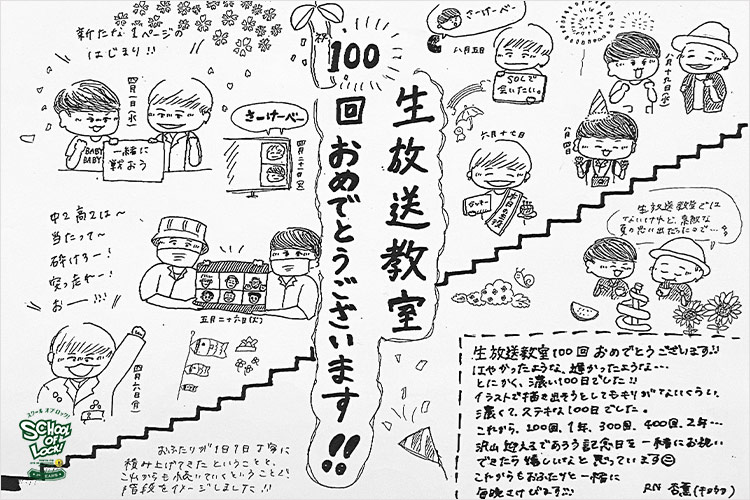 祝
100
回おめでとうございます!!
生放送教室
新たな1ページの
はじまり!!
四月一日(水)
BABY
BABY
一緒に
戦おう
さーけーべー
四月二十一日(火)
中2 高2は〜
当たって〜
砕けろー!
突っ走れー!
おー!!!
五月二十六日(火)
四月六日(月)
スクールオブロック!
SCHOOL
OF
LOCK!
おふたりが1日1日丁寧に
積み上げてきたということと、
これからも続いていくということで、
階段をイメージしました!!
さーけーべー
八月五日
SOLで
会いたい。
六月十七日
本日の主役
八月十九日(水)
八月四日
生放送教室では
ないけれど、素敵な
夏の思い出だったので…。
生放送教室100回おめでとうございます!!
はやかったような、短かったような…
とにかく、濃い100日でした!!
イラストで描き出そうとしてもキリがないくらい、
濃くて、ステキな100日でした。
これから、200回、1年、300回、400回、2年…
沢山迎えるであろう記念日を一緒にお祝い
できたら嬉しいなと思っています
これからもおふたりと一緒に
毎晩さけびます!!
RN 杏薫